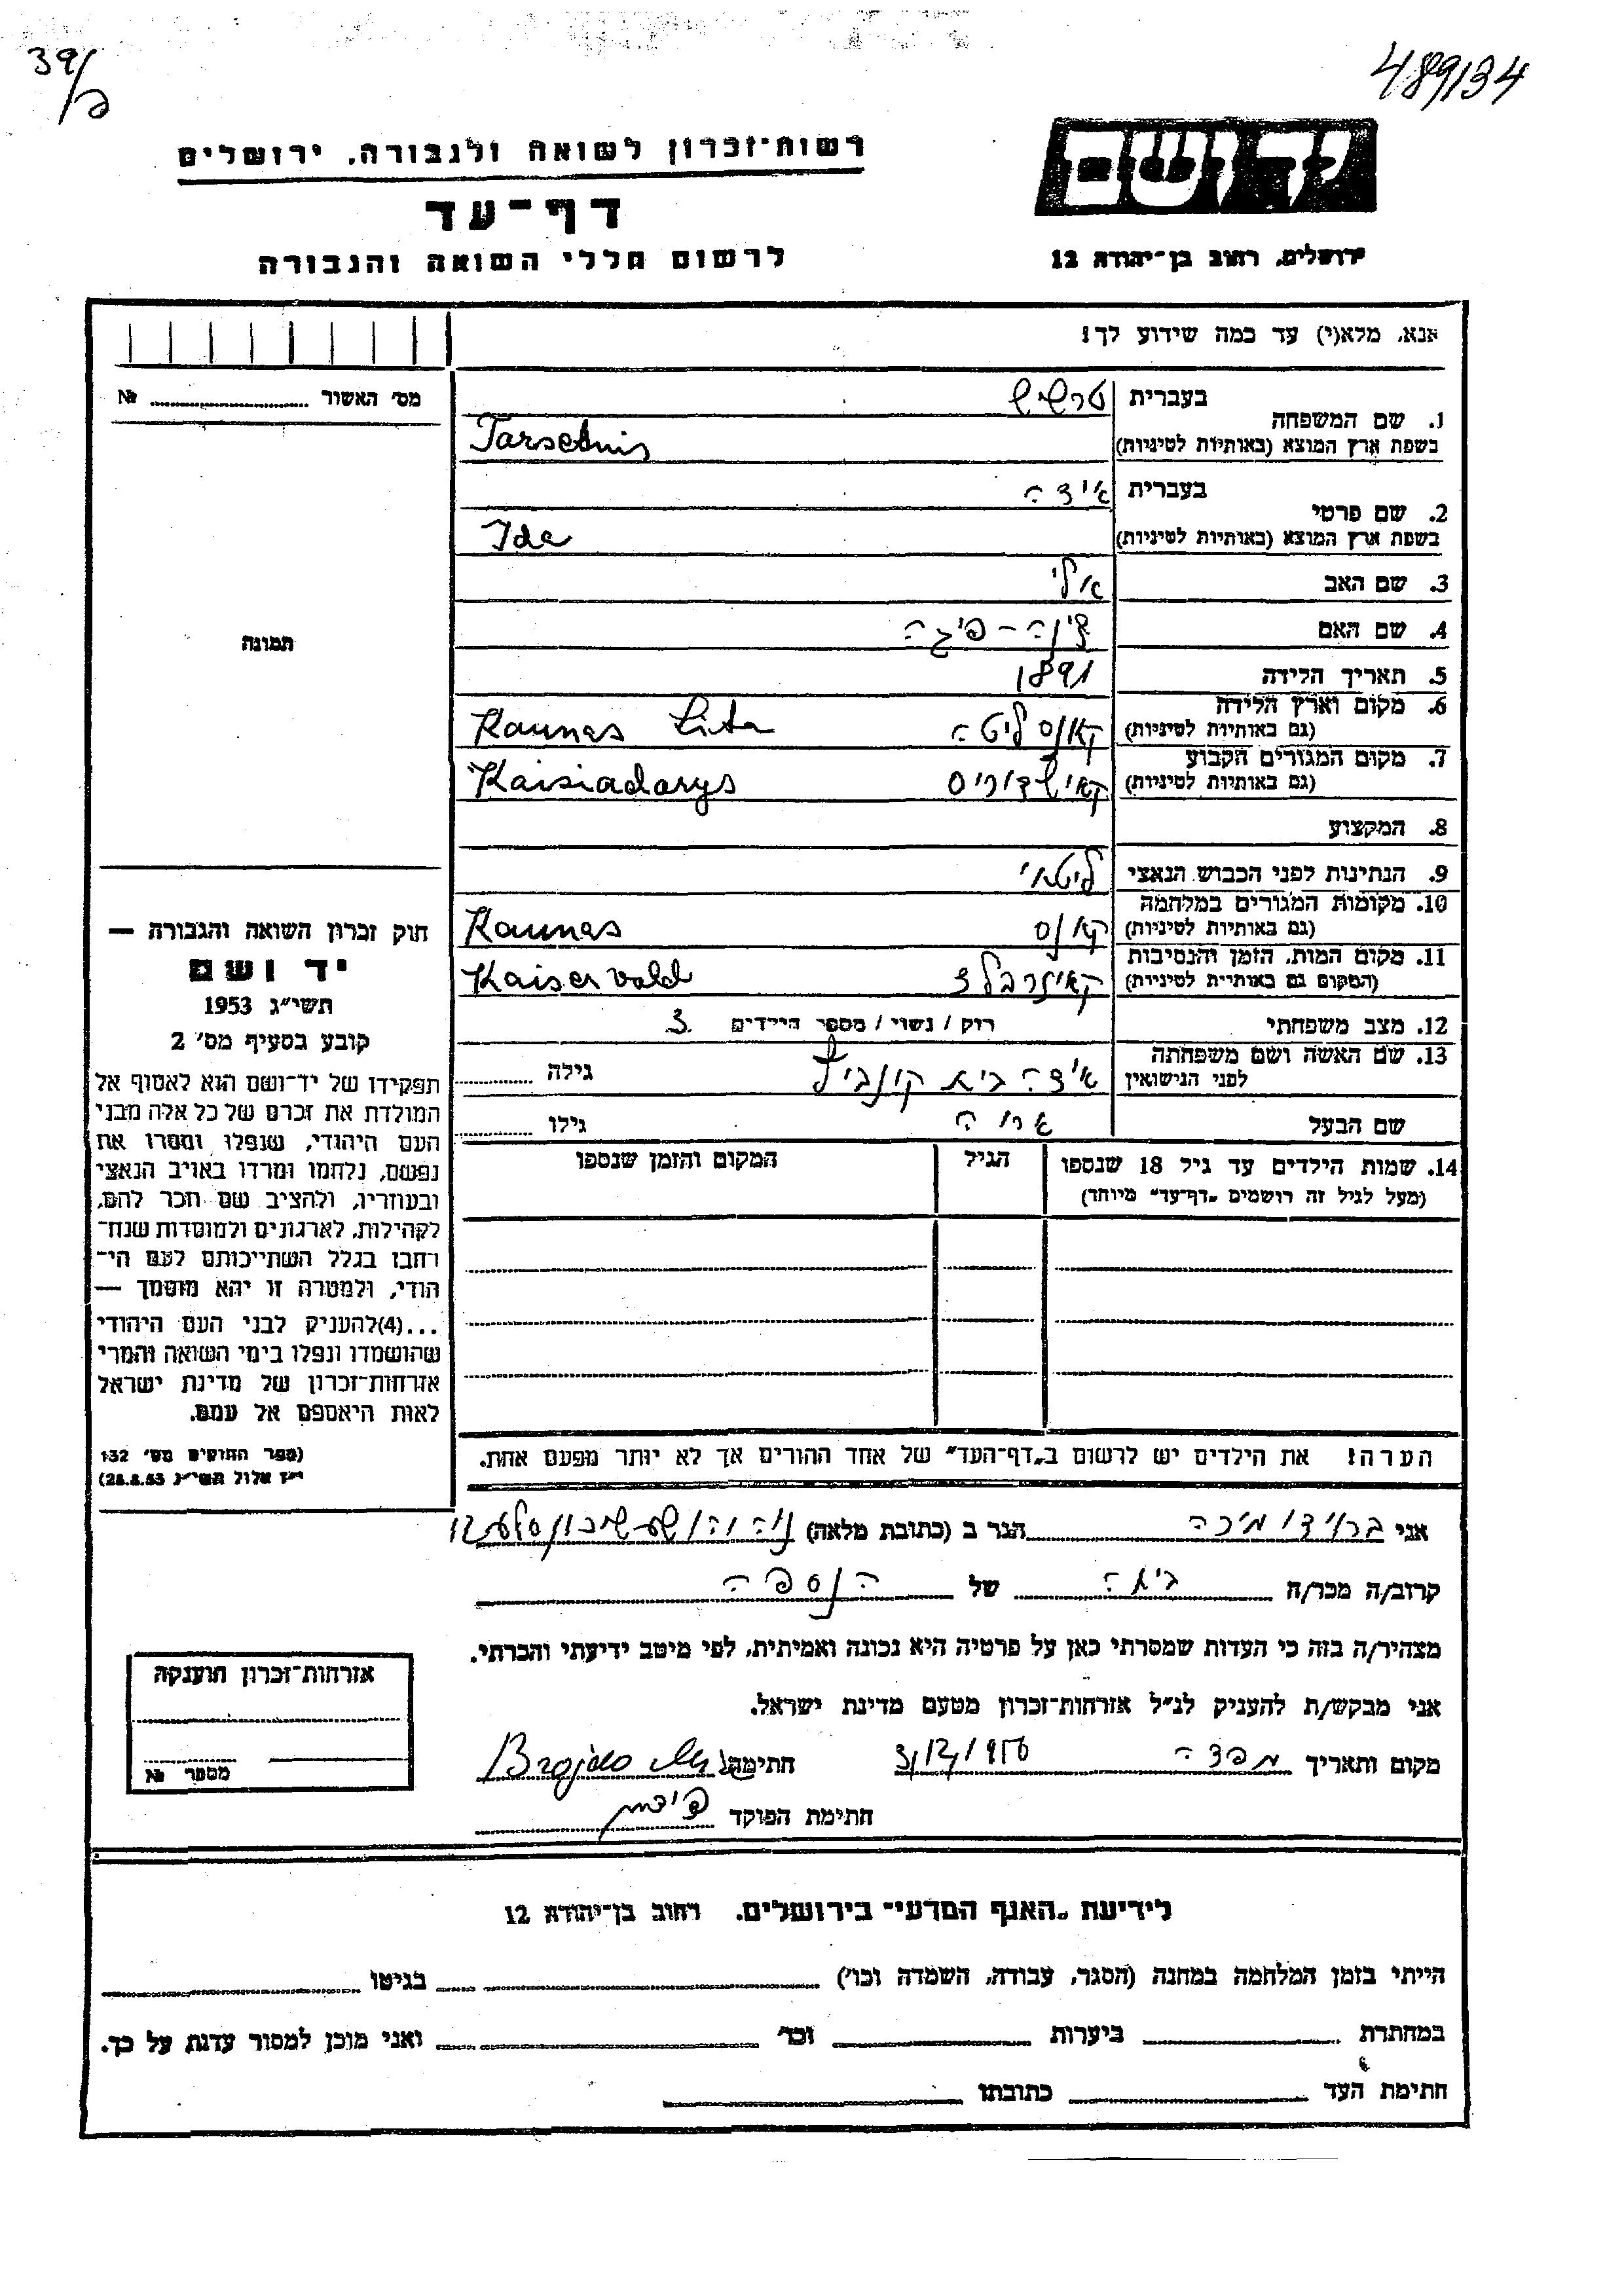 39/ב
489/34
יד ושם
רשות-זכרון לשואה ולגבורה, ירושלים
דף-עד
לרשום חללי השואה והגבורה
ירושלים, רחוב בן-יהודה 12
אנא, מלא(י) עד כמה שידוע לך!
מס׳ האשור № 
1. שם המשפחה
בעברית טרשיש
בשפת ארץ המוצא (באותיות לטיניות)
2. שם פרטי
בעברית אידה
בשפת ארץ המוצא (באותיות לטיניות) Ida
3. שם האב אלי
4. שם האם פיגה
5. תאריך הלידה 1891
6. מקום וארץ הלידה (גם באותיות לטיניות) קאונס ליטה Kaunas Lita
7. מקום המגורים הקבוע (גם באותיות לטיניות) קאישדוריס Kaisiadarys
8. המקצוע
9. הנתינות לפני הכבוש הנאצי ליטאי
10. מקומות המגורים במלחמה (גם באותיות לטיניות) קאונס Kaunas
11. מקום המות, הזמן והנסיבות (המקום גם באותיות לטיניות) קאיזרבלד Kaiservald
12. מצב משפחתי רוק / נשוי / מספר הילדים 3
13. שם האשה ושם משפחתה לפני הנישואין אידה גילה
שם הבעל גילו
14. שמות הילדים עד גיל 18 שנספו
(מעל לגיל זה רושמים "דף-עד" מיוחד)
הגיל
המקום והזמן שנספו
הערה! את הילדים יש לרשום ב"דף-העד" של אחד ההורים אך לא יותר מפעם אחת.
תמונה
חוק זכרון השואה והגבורה —
יד ושם
תשי"ג 1953
קובע בסעיף מס׳ 2
תפקידו של יד-ושם הוא לאסוף אל
המולדת את זכרם של כל אלה מבני
העם היהודי, שנפלו ומסרו את
נפשם, נלחמו ומרדו באויב הנאצי
ובעוזריו, ולהציב שם וזכר להם,
לקהילות, לארגונים ולמוסדות שנח-
רבו בגלל השתייכותם לעם הי-
הודי, ולמטרה זו יהא מוסמך —
...(4) להעניק לבני העם היהודי
שהושמדו ונפלו בימי השואה והמרי
אזרחות-זכרון של מדינת ישראל
לאות היאספם אל עמם.
(ספר החוקים מס׳ 132
י"ז אלול תשי"ג 28.8.53)
אני ברוידו מיכה הגר ב (כתובת מלאה)
קרוב/ה מכר/ה של הנספה
מצהיר/ה בזה כי העדות שמסרתי כאן על פרטיה היא נכונה ואמיתית, לפי מיטב ידיעתי והכרתי.
אני מבקש/ת להעניק לנ"ל אזרחות-זכרון מטעם מדינת ישראל.
מקום ותאריך 3/12/1956 חתימה Brojdo
חתימת הפוקד
אזרחות-זכרון הוענקה
מספר №
לידיעת "האגף המדעי" בירושלים. רחוב בן-יהודה 12
הייתי בזמן המלחמה במחנה (הסגר, עבודה, השמדה וכו׳) בגיטו
במחתרת ביערות וכו׳ ואני מוכן למסור עדות על כך.
חתימת העד כתובתו